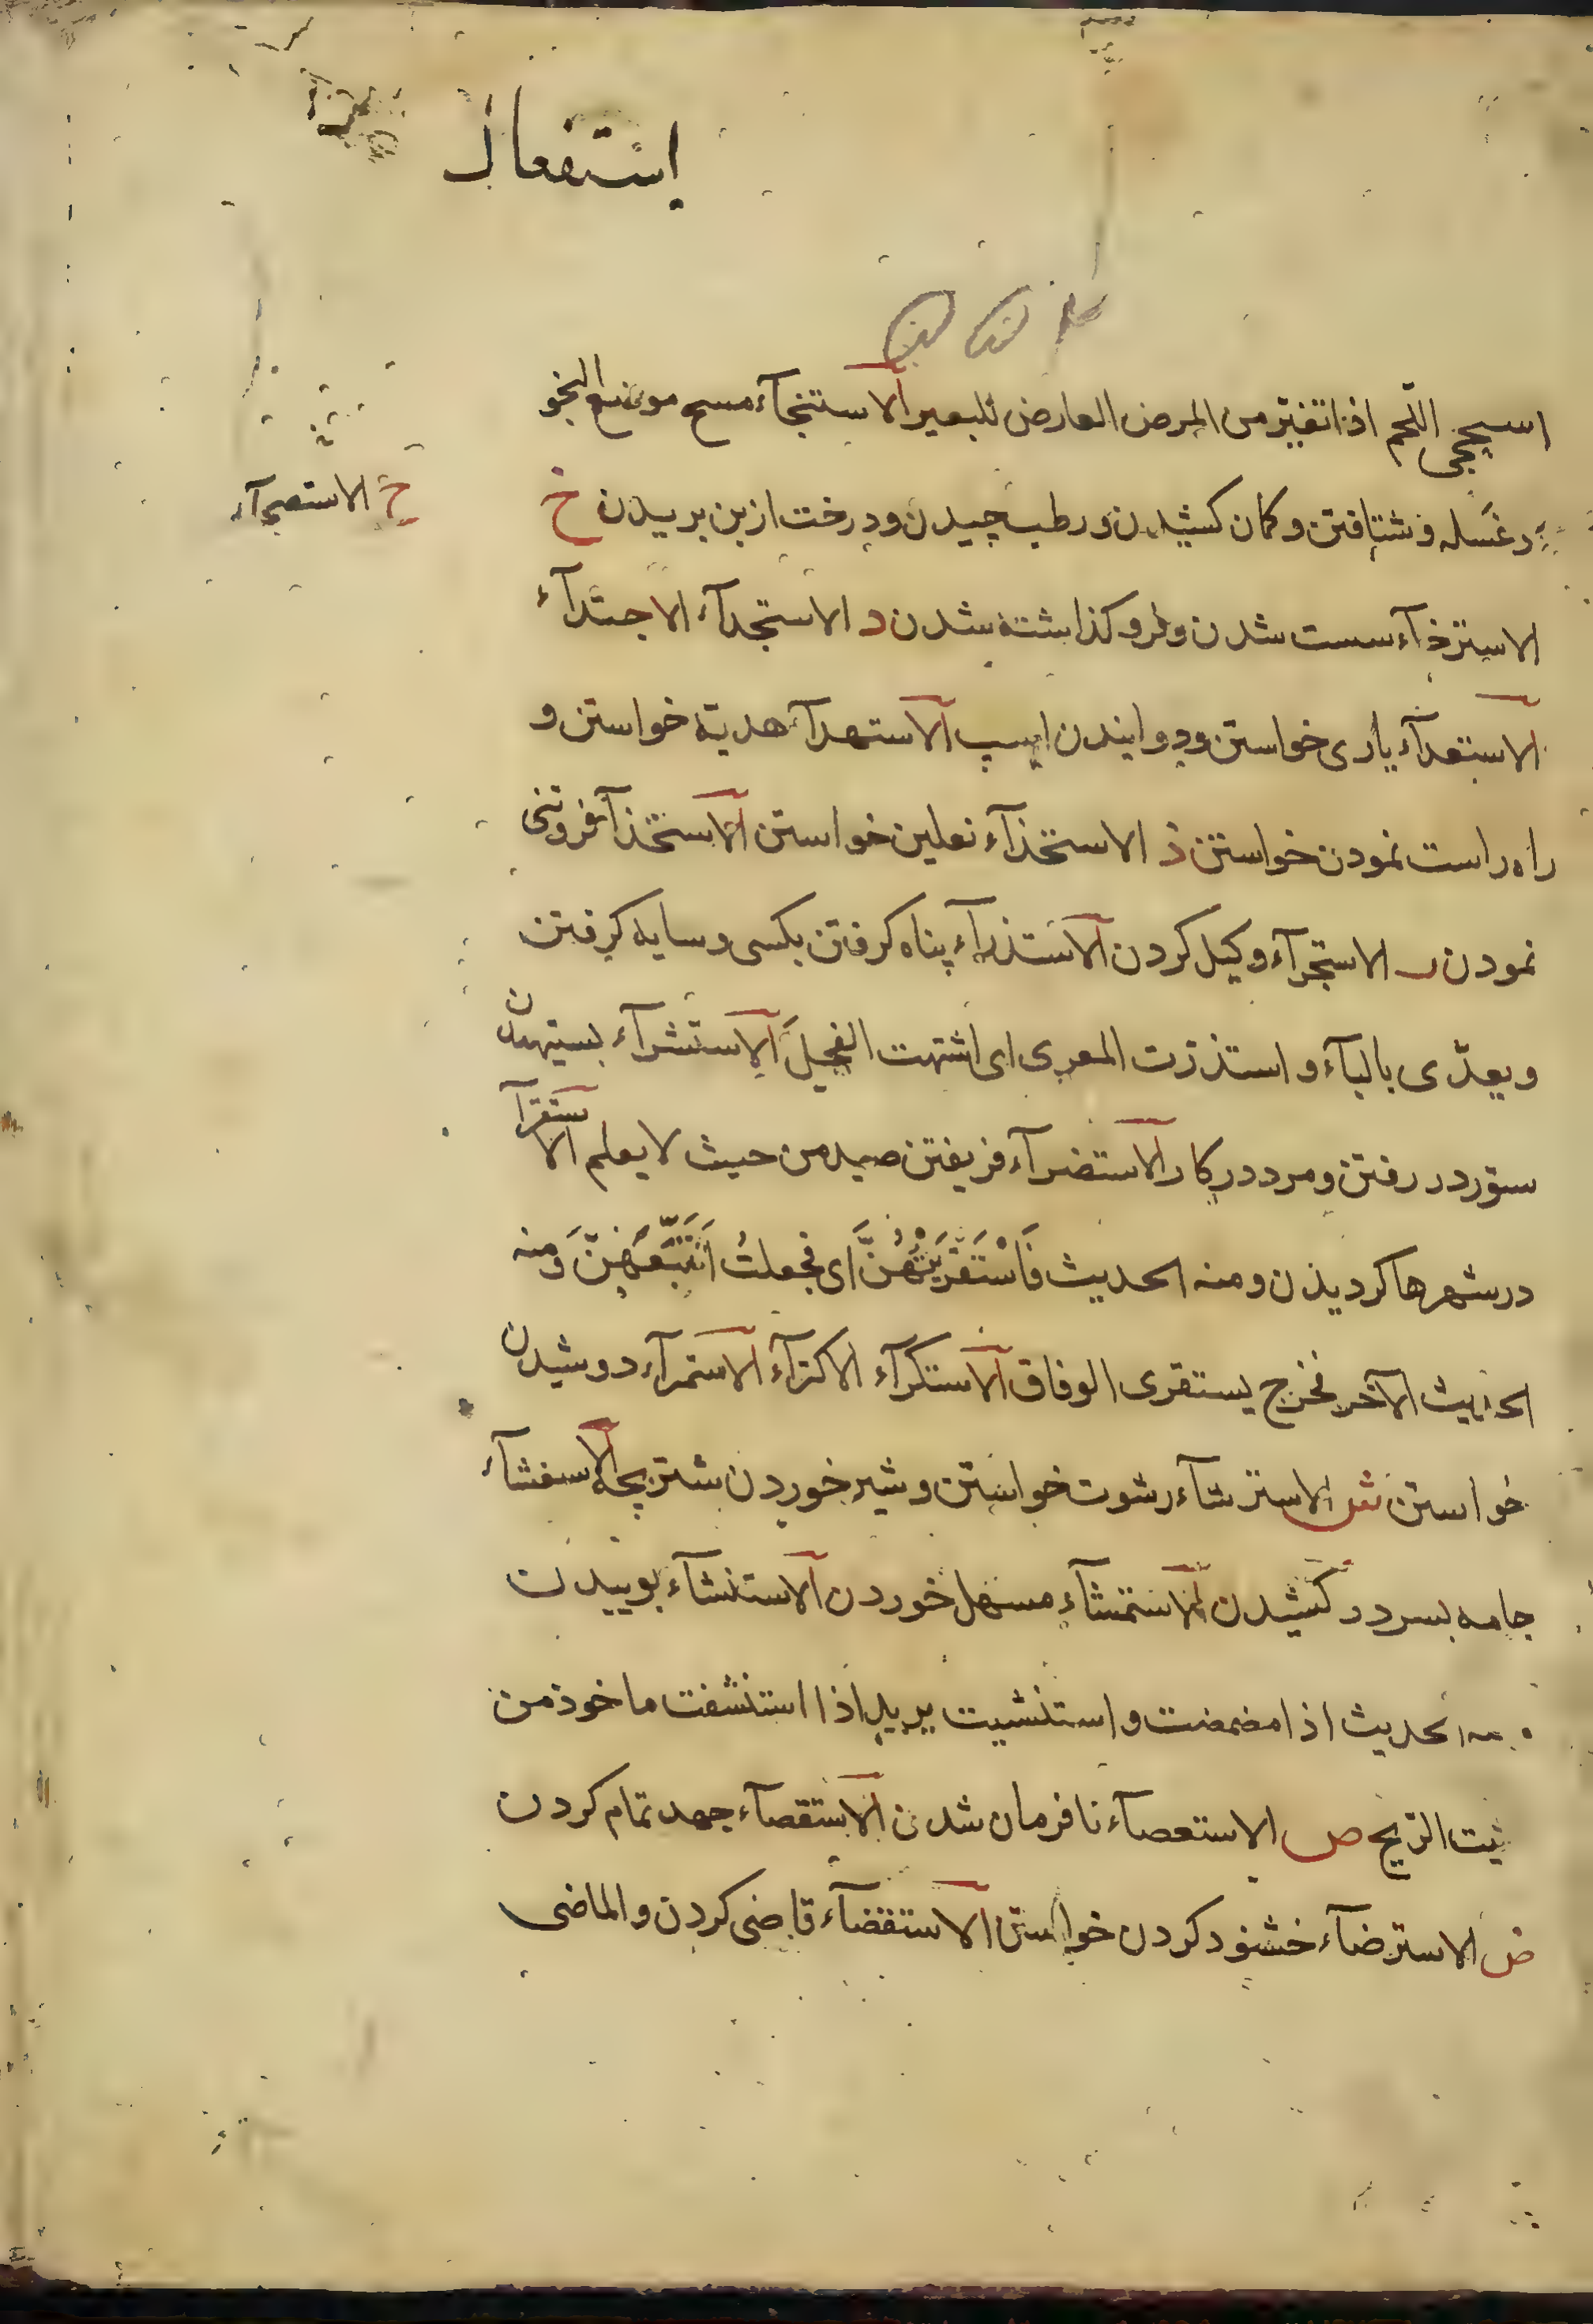 استفعال
اسیحجی اللّحم اذا تغیّر من المرض العارض للبعیر الاستنجآء مسح موضع النجو
غسله و شتافتن و کمان کشیدن و رطب چیدن و درخت از بن بریدن خ
ح الاستصحآء
الاسترخآء سست شدن و فرو کذاشته شدن د الاستجدآء الاجتدآء
الاستعدآء یاری خواستن و دوانیدن اسپ الاستهدآء هدیّة خواستن و
راه راست نمودن خواستن ذ الاستحذآء نعلین خواستن الاستخذآء فروتنی
نمودن ر الاستجرآء وکیل کردن الاستذرآء پناه کرفتن بکسی و سایه کرفتن
و یعدّی بالبآء و استذرت المعزی ای اشتهت الفحل الاستشرآء بستیهیدن
ستور در رفتن و مرد در کار الاستضرآء فریفتن صید من حیث لا یعلم الاستقرآء
در شهرها کردیذن و منه الحدیث فَاسْتَقْرَیْتُهُنَّ ای فجعلتُ اَتَتَبَّعُهُنَّ و منه
الحدیث الآخر فخرج یستقری الوفاق الاستکرآء الاکترآء الاستمرآء دوشیدن
خواستن ش الاسترشآء رشوت خواستن و شیر خوردن شتر بچه الاستغشآء
جامه بسر در کشیدن الاستمشآء مسهل خوردن الاستنشآء بوییدن
الحدیث اذا مضمضت و استنشیت یرید اذا استنشقت ماخوذ من
الرّیح ص الاستعصآء نافرمان شدن الاستقصآء جهد تمام کردن
ض الاسترضآء خشنود کردن خواستن الاستقضآء قاضی کردن و الماضی